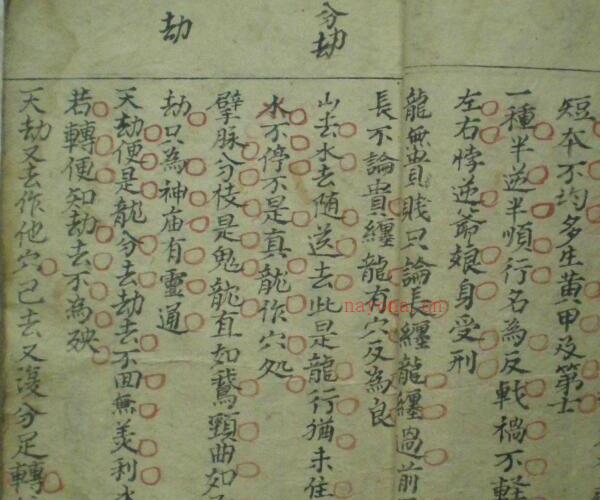 分劫
劫
短本不均多生黄甲及第士
一種半逆半順行名為反戟禍不軽
左右悖逆爺娘身受刑
龍無貴賎只論長纏龍纏過前
長不論貴纏龍有穴反為良
山去水去随送去此是龍行猶未住
水不停不是真龍作穴処
擘脉分枝是鬼龍直如鵝頸曲如
劫只為神庙有靈通
天劫便是龍分去劫去不回無美利
若轉便知劫去不為殃
天劫又去作他穴已去又復分足轉
nayona.cn